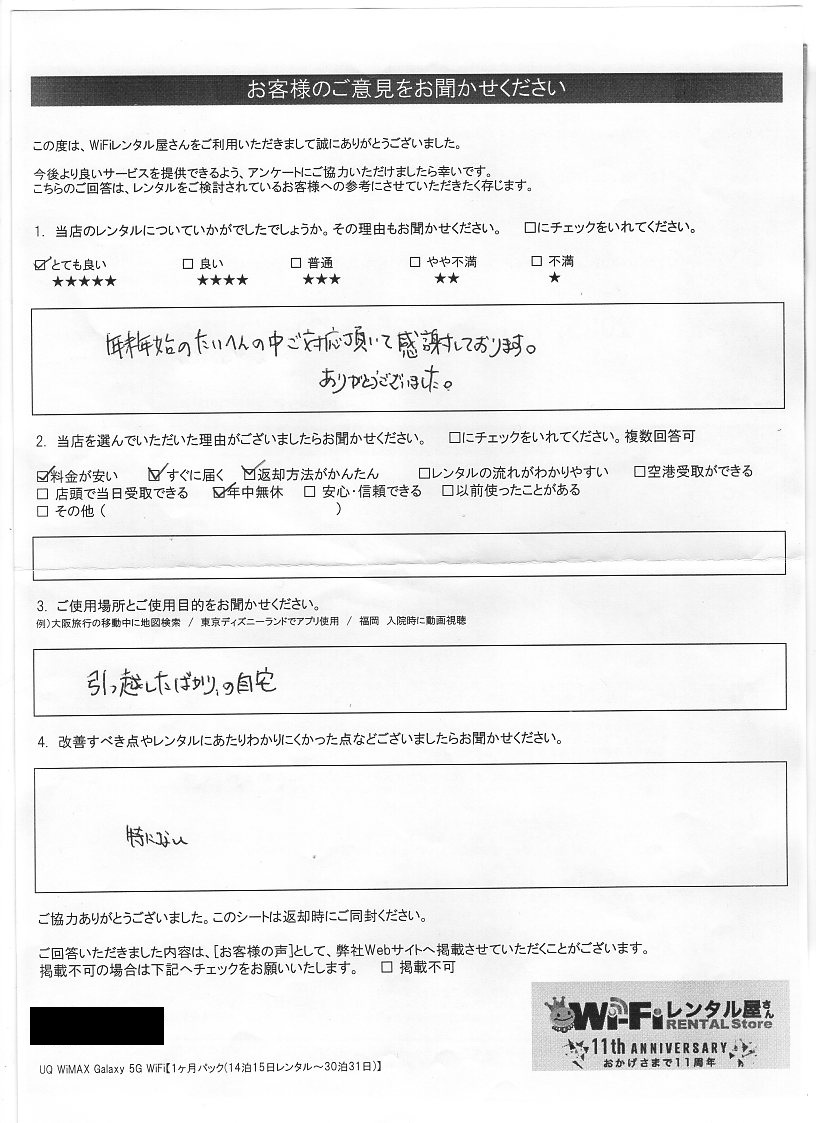 お客様のご意見をお聞かせください
この度は、WiFiレンタル屋さんをご利用いただきまして誠にありがとうございました。
今後より良いサービスを提供できるよう、アンケートにご協力いただけましたら幸いです。
こちらのご回答は、レンタルをご検討されているお客様への参考にさせていただきたく存じます。
1. 当店のレンタルについていかがでしたでしょうか。その理由もお聞かせください。 □にチェックをいれてください。
☑とても良い □ 良い □ 普通 □ やや不満 □ 不満
★★★★★ ★★★★ ★★★ ★★ ★
年末年始のたいへんの中ご対応頂いて感謝しております。
ありがとうございました。
2. 当店を選んでいただいた理由がございましたらお聞かせください。 □にチェックをいれてください。複数回答可
☑料金が安い ☑すぐに届く ☑返却方法がかんたん □レンタルの流れがわかりやすい □空港受取ができる
□ 店頭で当日受取できる ☑年中無休 □ 安心・信頼できる □以前使ったことがある
□ その他 ( )
3. ご使用場所とご使用目的をお聞かせください。
例)大阪旅行の移動中に地図検索 / 東京ディズニーランドでアプリ使用 / 福岡 入院時に動画視聴
引っ越したばかりの自宅
4. 改善すべき点やレンタルにあたりわかりにくかった点などございましたらお聞かせください。
特にない
ご協力ありがとうございました。このシートは返却時にご同封ください。
ご回答いただきました内容は、[お客様の声]として、弊社Webサイトへ掲載させていただくことがございます。
掲載不可の場合は下記へチェックをお願いいたします。 □ 掲載不可
Wi-Fiレンタル屋さん
RENTAL Store
11th ANNIVERSARY
おかげさまで11周年
UQ WiMAX Galaxy 5G WiFi【1ヶ月パック(14泊15日レンタル～30泊31日)】